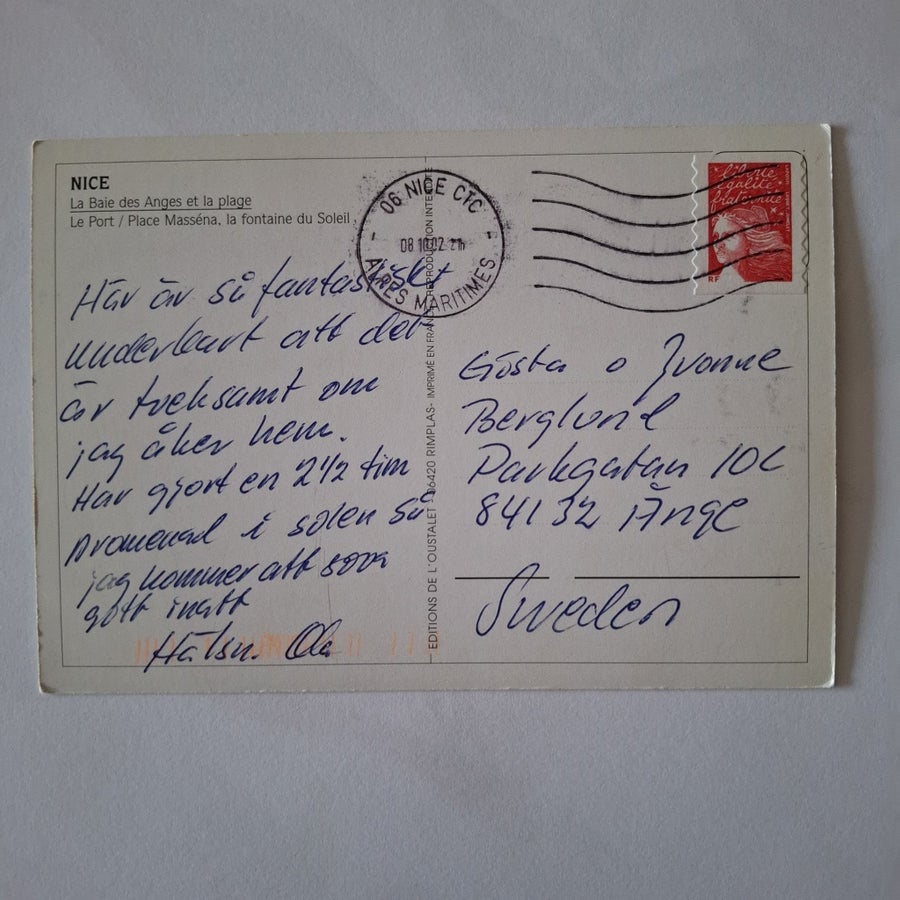 NICE
La Baie des Anges et la plage
Le Port / Place Masséna, la fontaine du Soleil
Här är så fantastiskt
underbart att det
är tveksamt om
jag åker hem.
Har gjort en 2 1/2 tim
promenad i solen så
jag kommer att sova
gott inatt
Hälsn. Ola
EDITIONS DE L'OUSTALET - 06420 RIMPLAS - IMPRIMÉ EN FRANCE REPRODUCTION INTERDITE
06 NICE CTC
08 10 02
ALPES MARITIMES
liberté
égalité
fraternité
RF
Gösta o Yvonne
Berglund
Parkgatan 10C
84132 Ånge
Sweden